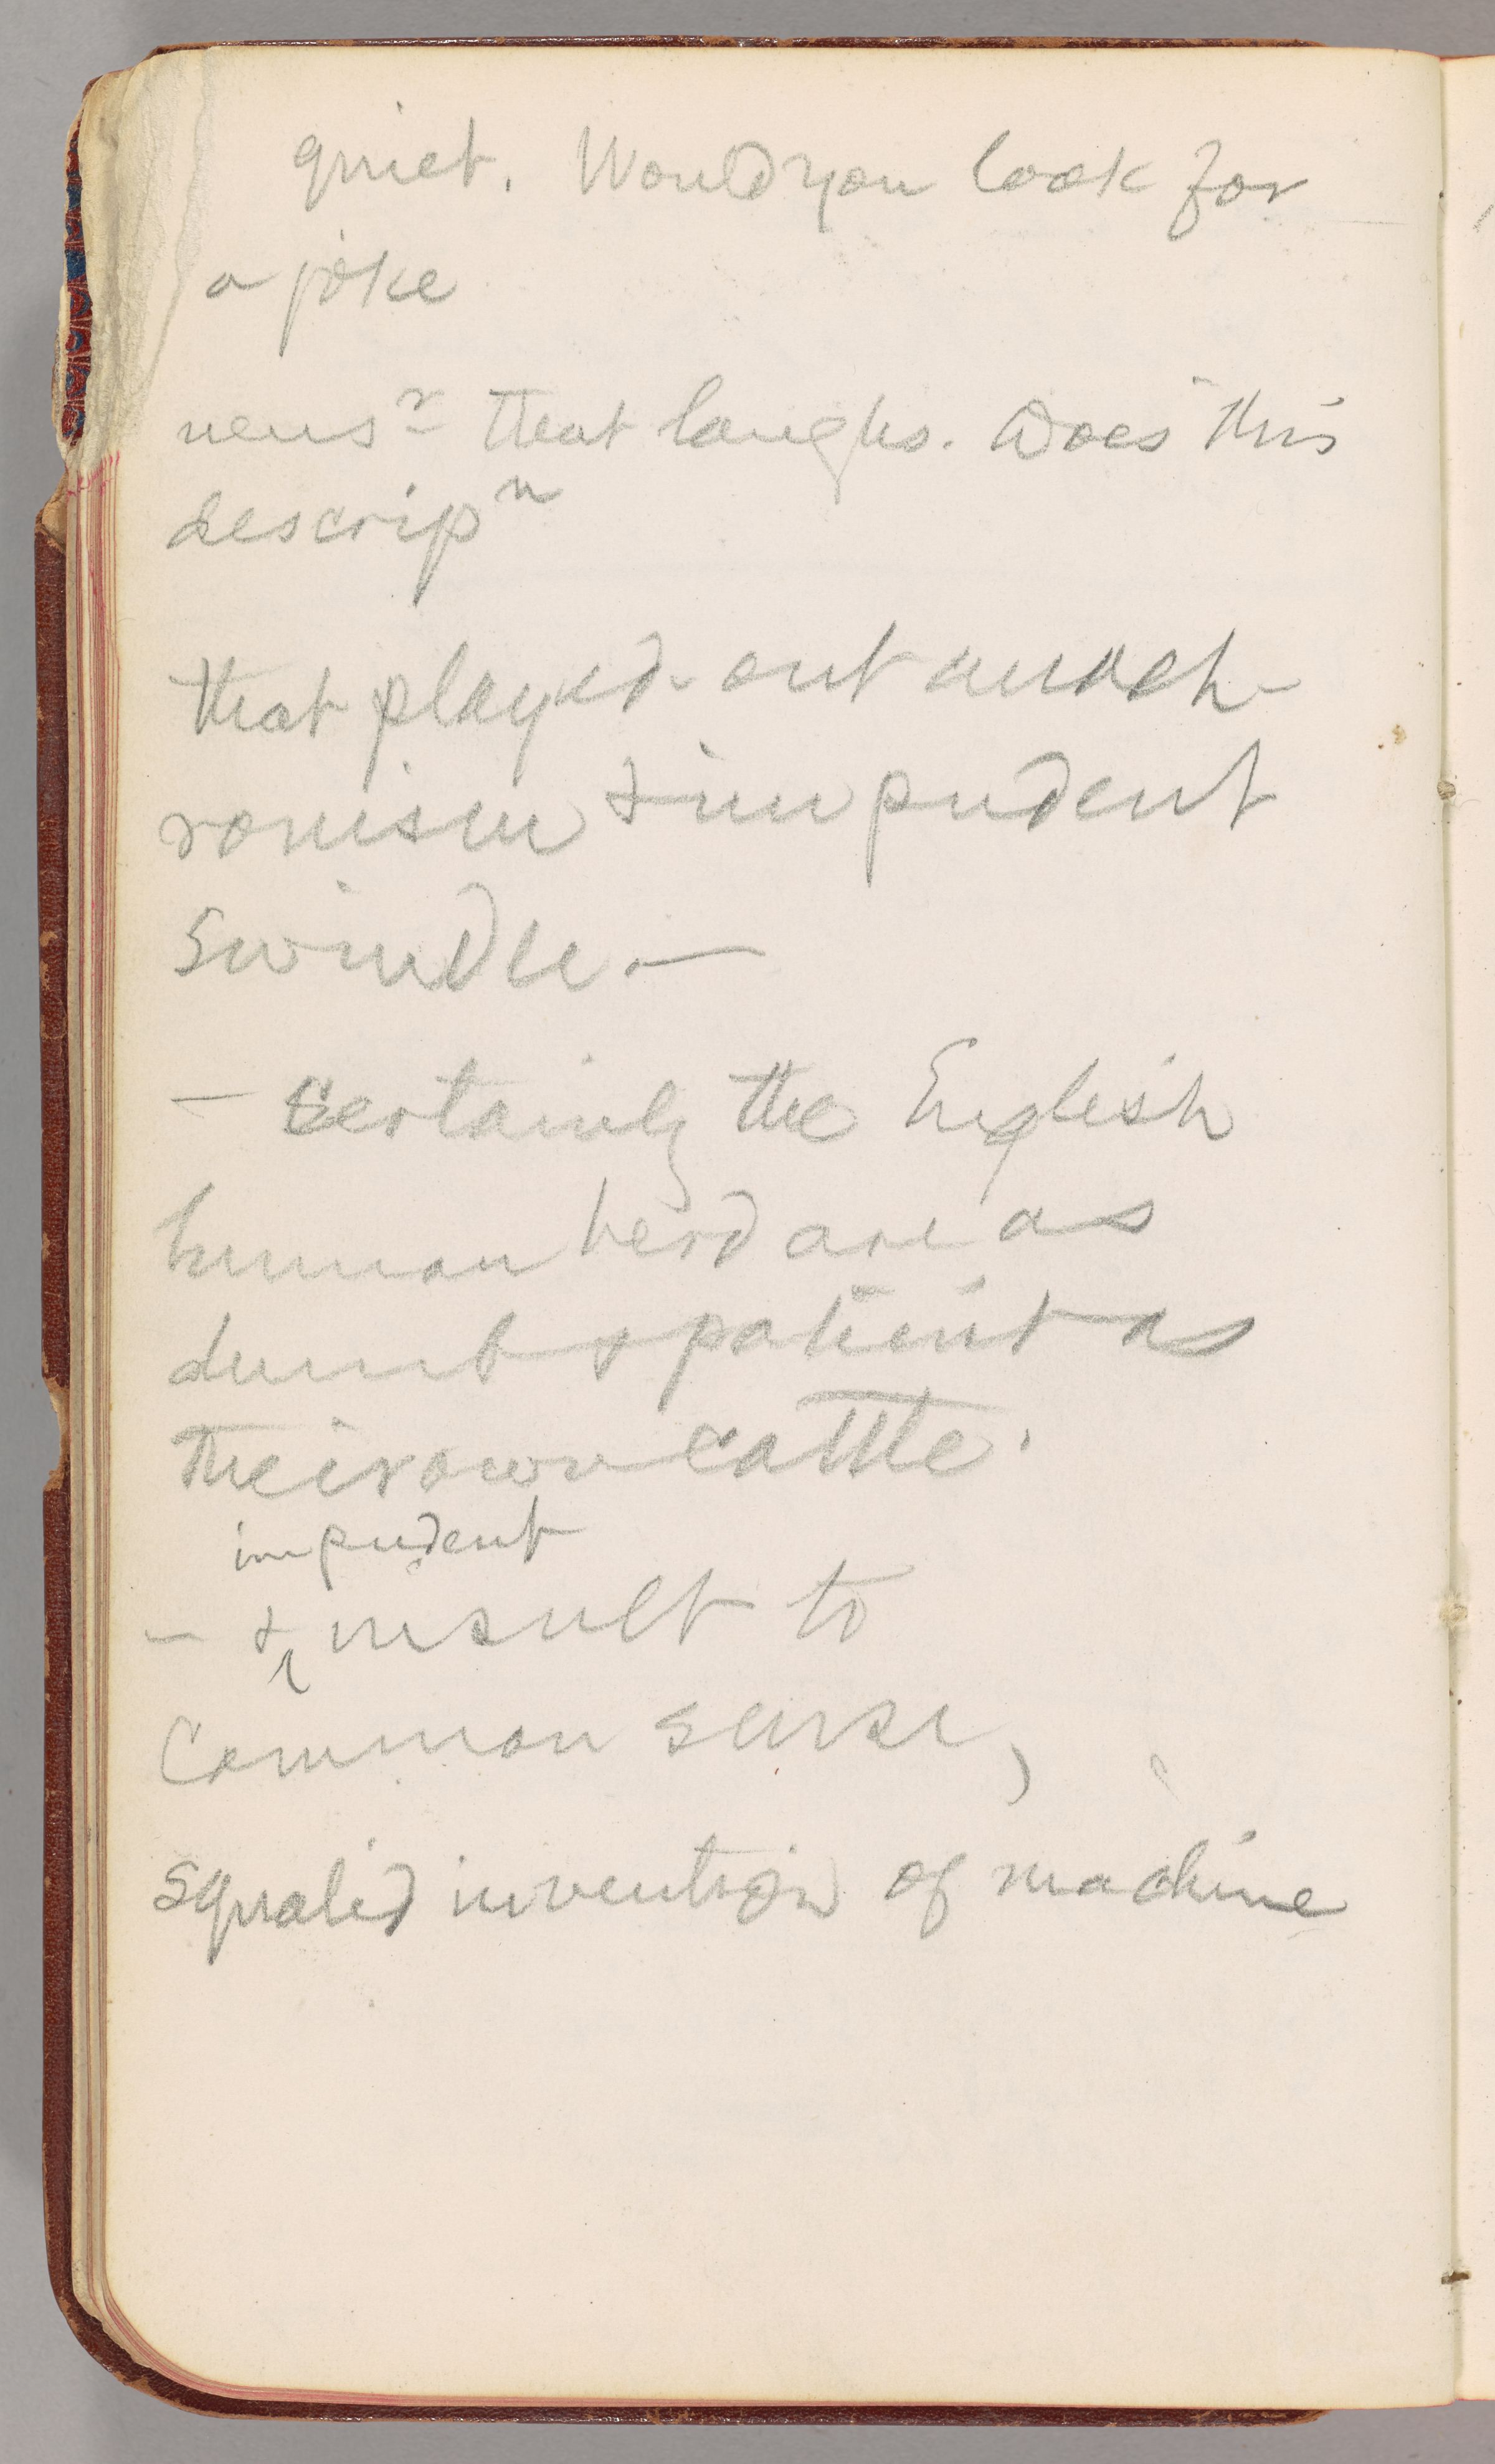 quiet. Would you look for
a joke
newsr that laughs. Does this
descripn
that played-out anach-
ronism & impudent
swindle. —
— Certainly the English
human herd are as
dumb & patient as
their own cattle.
impudent
— & insult to
Common sense,
squalid invention of machine